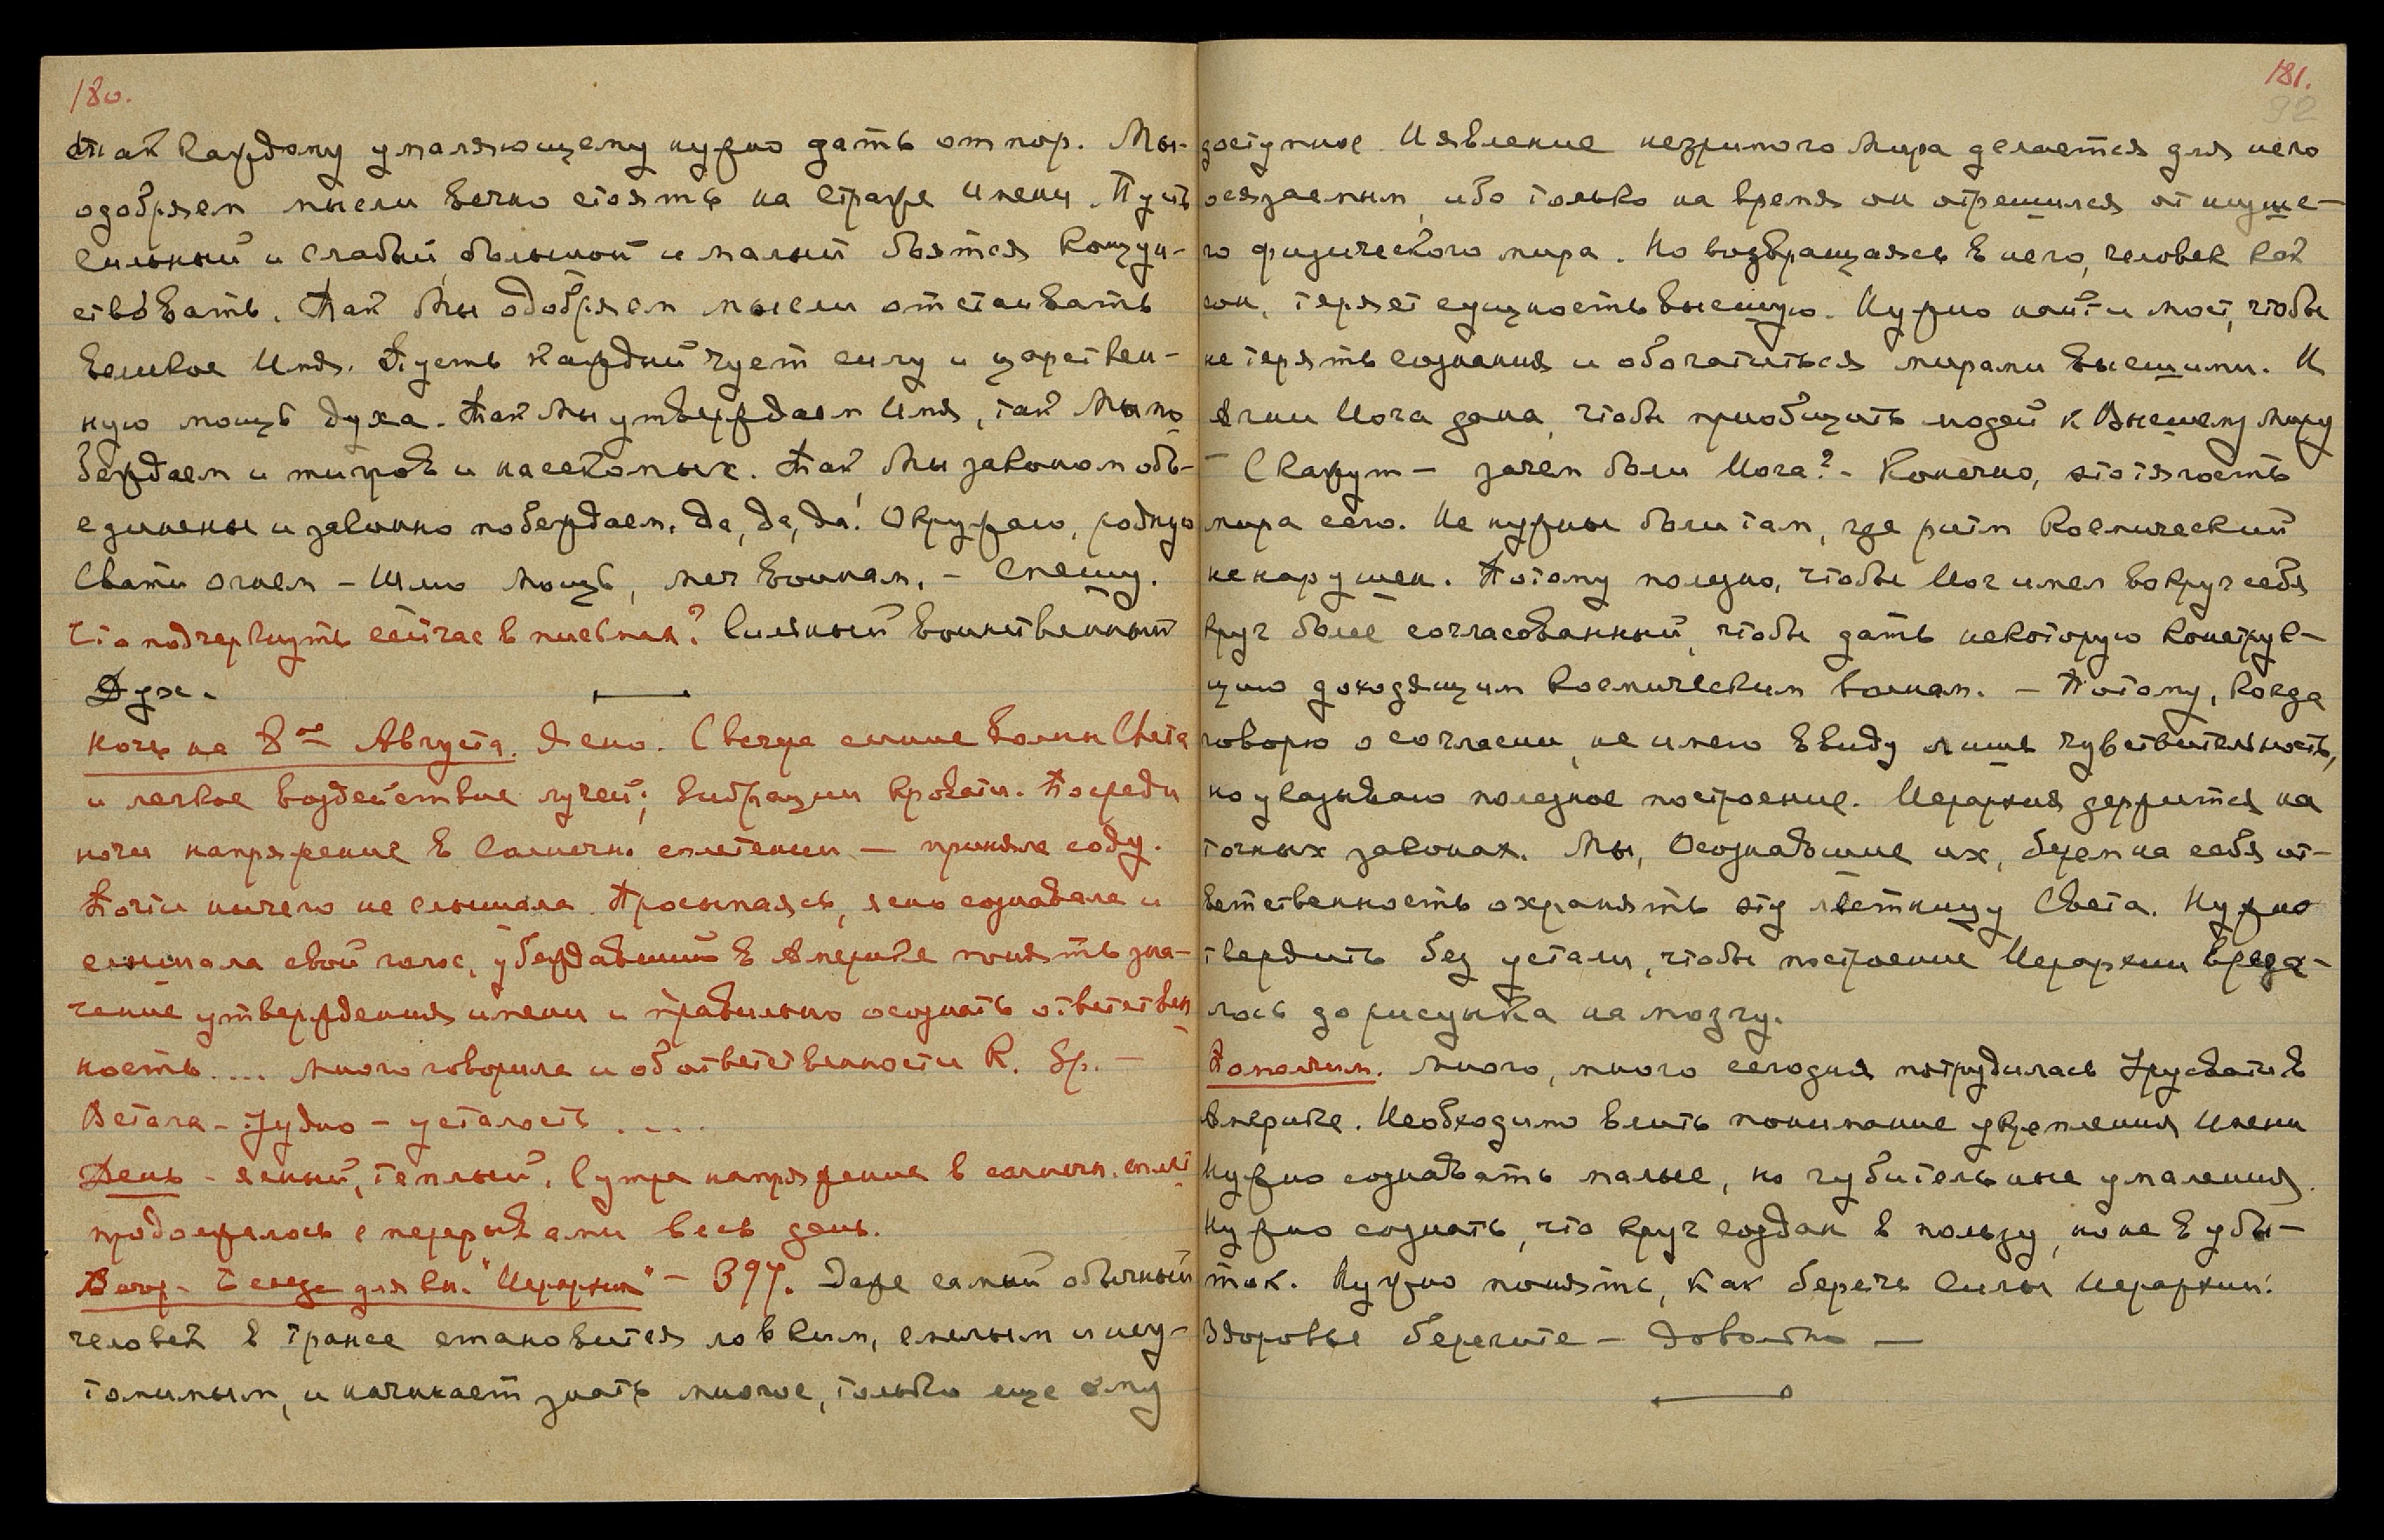 180.
Так каждому умаляющему нужно дать отпор. Мы-
одобряем мысли вечно стоять на страже Имени. Пусть
сильный и слабый, большой и малый боятся кощун-
ствовать. Так Мы одобряем мысли отстаивать
великое Имя. Пусть каждый чует силу и царствен-
ную мощь духа. Так Мы утверждаем Имя, так Мы по
беждаем и тигров и насекомых. Так Мы законом объ-
единены и законно побеждаем. Да, да, да! Окружаю, родную
Свати огнем – Шлю Мощь, меч воинам. – Спешу.
Что подчеркнуть сейчас в письмах? Сильный воинственный
Дух.
Ночь на 8ое Августа. Ясно. С вечера синие волны Света
и легкое воздействие лучей; вибрации кровати. Посреди
ночи напряжение в солнечн. сплетении – приняла соду.
Почти ничего не слышала. Просыпаясь, ясно сознавала и
слышала свой голос, убеждавший в Америке понять зна-
чение утверждения имени и правильно осознать ответствен
ность.... много говорила и об ответственности К. Бр. –
Встала – трудно – усталость ....
День – ясный, теплый. С утра напряжение в солнечн. сплет
продолжалось с перерывами весь день.
Вечер – Беседа для кн. "Иерархия" – 397. Даже самый обычный
человек в трансе становится ловким, смелым и неу-
томимым, и начинает знать многое, только еще ему
181.
92
доступное. И явление незримого Мира делается для него
осязаемым, ибо только на время он отрешился от низше-
го физического мира. Но возвращаясь в него, человек как
сон, теряет сущность высшую. Нужно найти мост, чтобы
не терять сознания и обогатиться мирами высшими. И
Агни Йога дана, чтобы приобщить людей к Высшему Миру
– Скажут – зачем боли Йога? – Конечно, это тягость
мира сего. Не нужны боли там, где ритм космический
не нарушен. Потому полезно, чтобы Йог имел вокруг себя
круг более согласованный, чтобы дать некоторую конструк-
цию доходящим космическим волнам. – Потому, когда
говорю о согласии, не имею в виду лишь чувствительность,
но указываю полезное построение. Иерархия держится на
точных законах. Мы, Осознавшие их, берем на себя от-
ветственность охранять эту лестницу Света. Нужно
твердить без устали, чтобы построение Иерархии вреза-
лось до рисунка на мозгу.
Пополним. Много, много сегодня потрудилась Урусвати в
Америке. Необходимо влить понимание укрепления Имени
Нужно сознавать малые, но губительные умаления.
Нужно сознать, что круг создан в пользу, но не в убы-
ток. Нужно понять, как беречь силы Иерархии!
Здоровье берегите – Довольно –